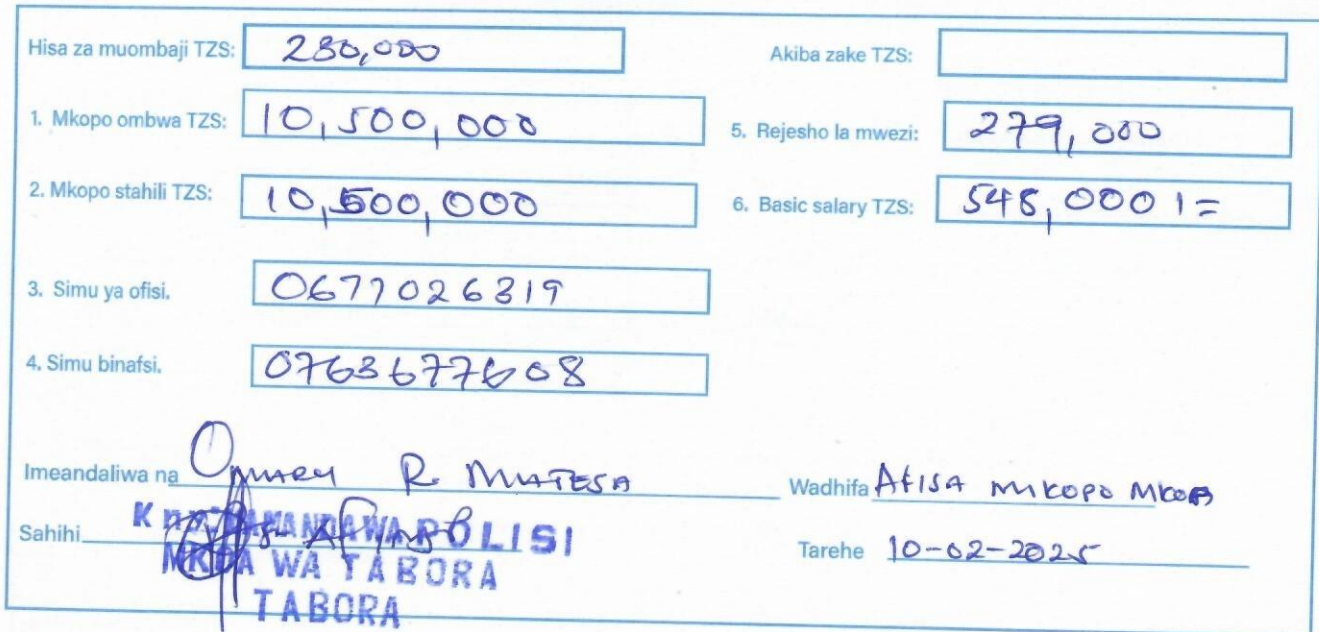 Hisa za muombaji TZS: 280,000 Akiba zake TZS:
1. Mkopo ombwa TZS: 10,500,000 5. Rejesho la mwezi: 279,000
2. Mkopo stahili TZS: 10,500,000 6. Basic salary TZS: 548,000 1=
3. Simu ya ofisi. 0677026319
4. Simu binafsi. 0763677608
Imeandaliwa na Omary R Mutesa Wadhifa Afisa mikopo Mkoa
Sahihi Tarehe 10-02-2025
KAMANDA WA POLISI
MKOA WA TABORA
TABORA